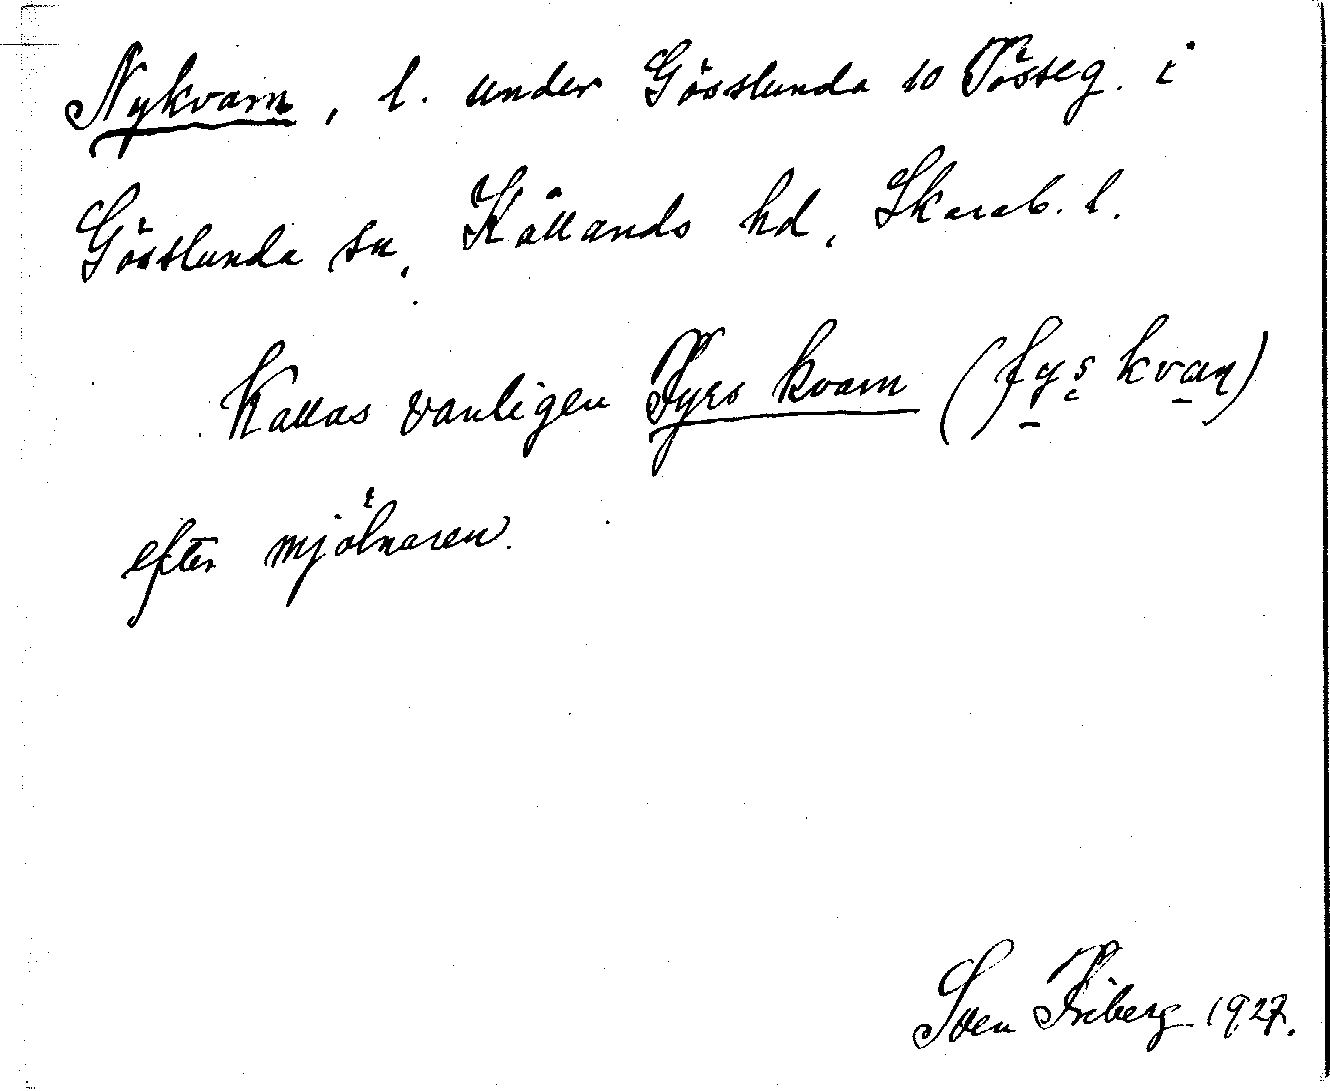 Nykvarn, l. under Gösslunda 10 Tösseg. i
Gösslunda sn, Kållands hd, Skarab. l.
Kallas vanligen Fyrs kvarn (fys kvaṇ)
efter mjölnaren.
Sven Friberg 1927.